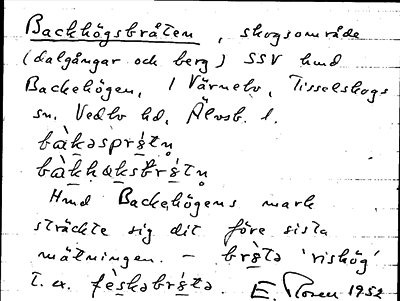 Backhögsbråten, skogsområde
(dalgångar och berg) SSV hmd
Backehögen, 1 Värnebo, Tisselskogs
sn, Vedbo hd, Älvsb. l.
bàkəsprs̀tn̥
bàkhøksbrs̀tn̥
Hmd Backehögens mark
sträckte sig dit före sista
mätningen. – brs̀tə 'rishög'
t. ex. fèskəbrs̀tə. E. Noreen 1952